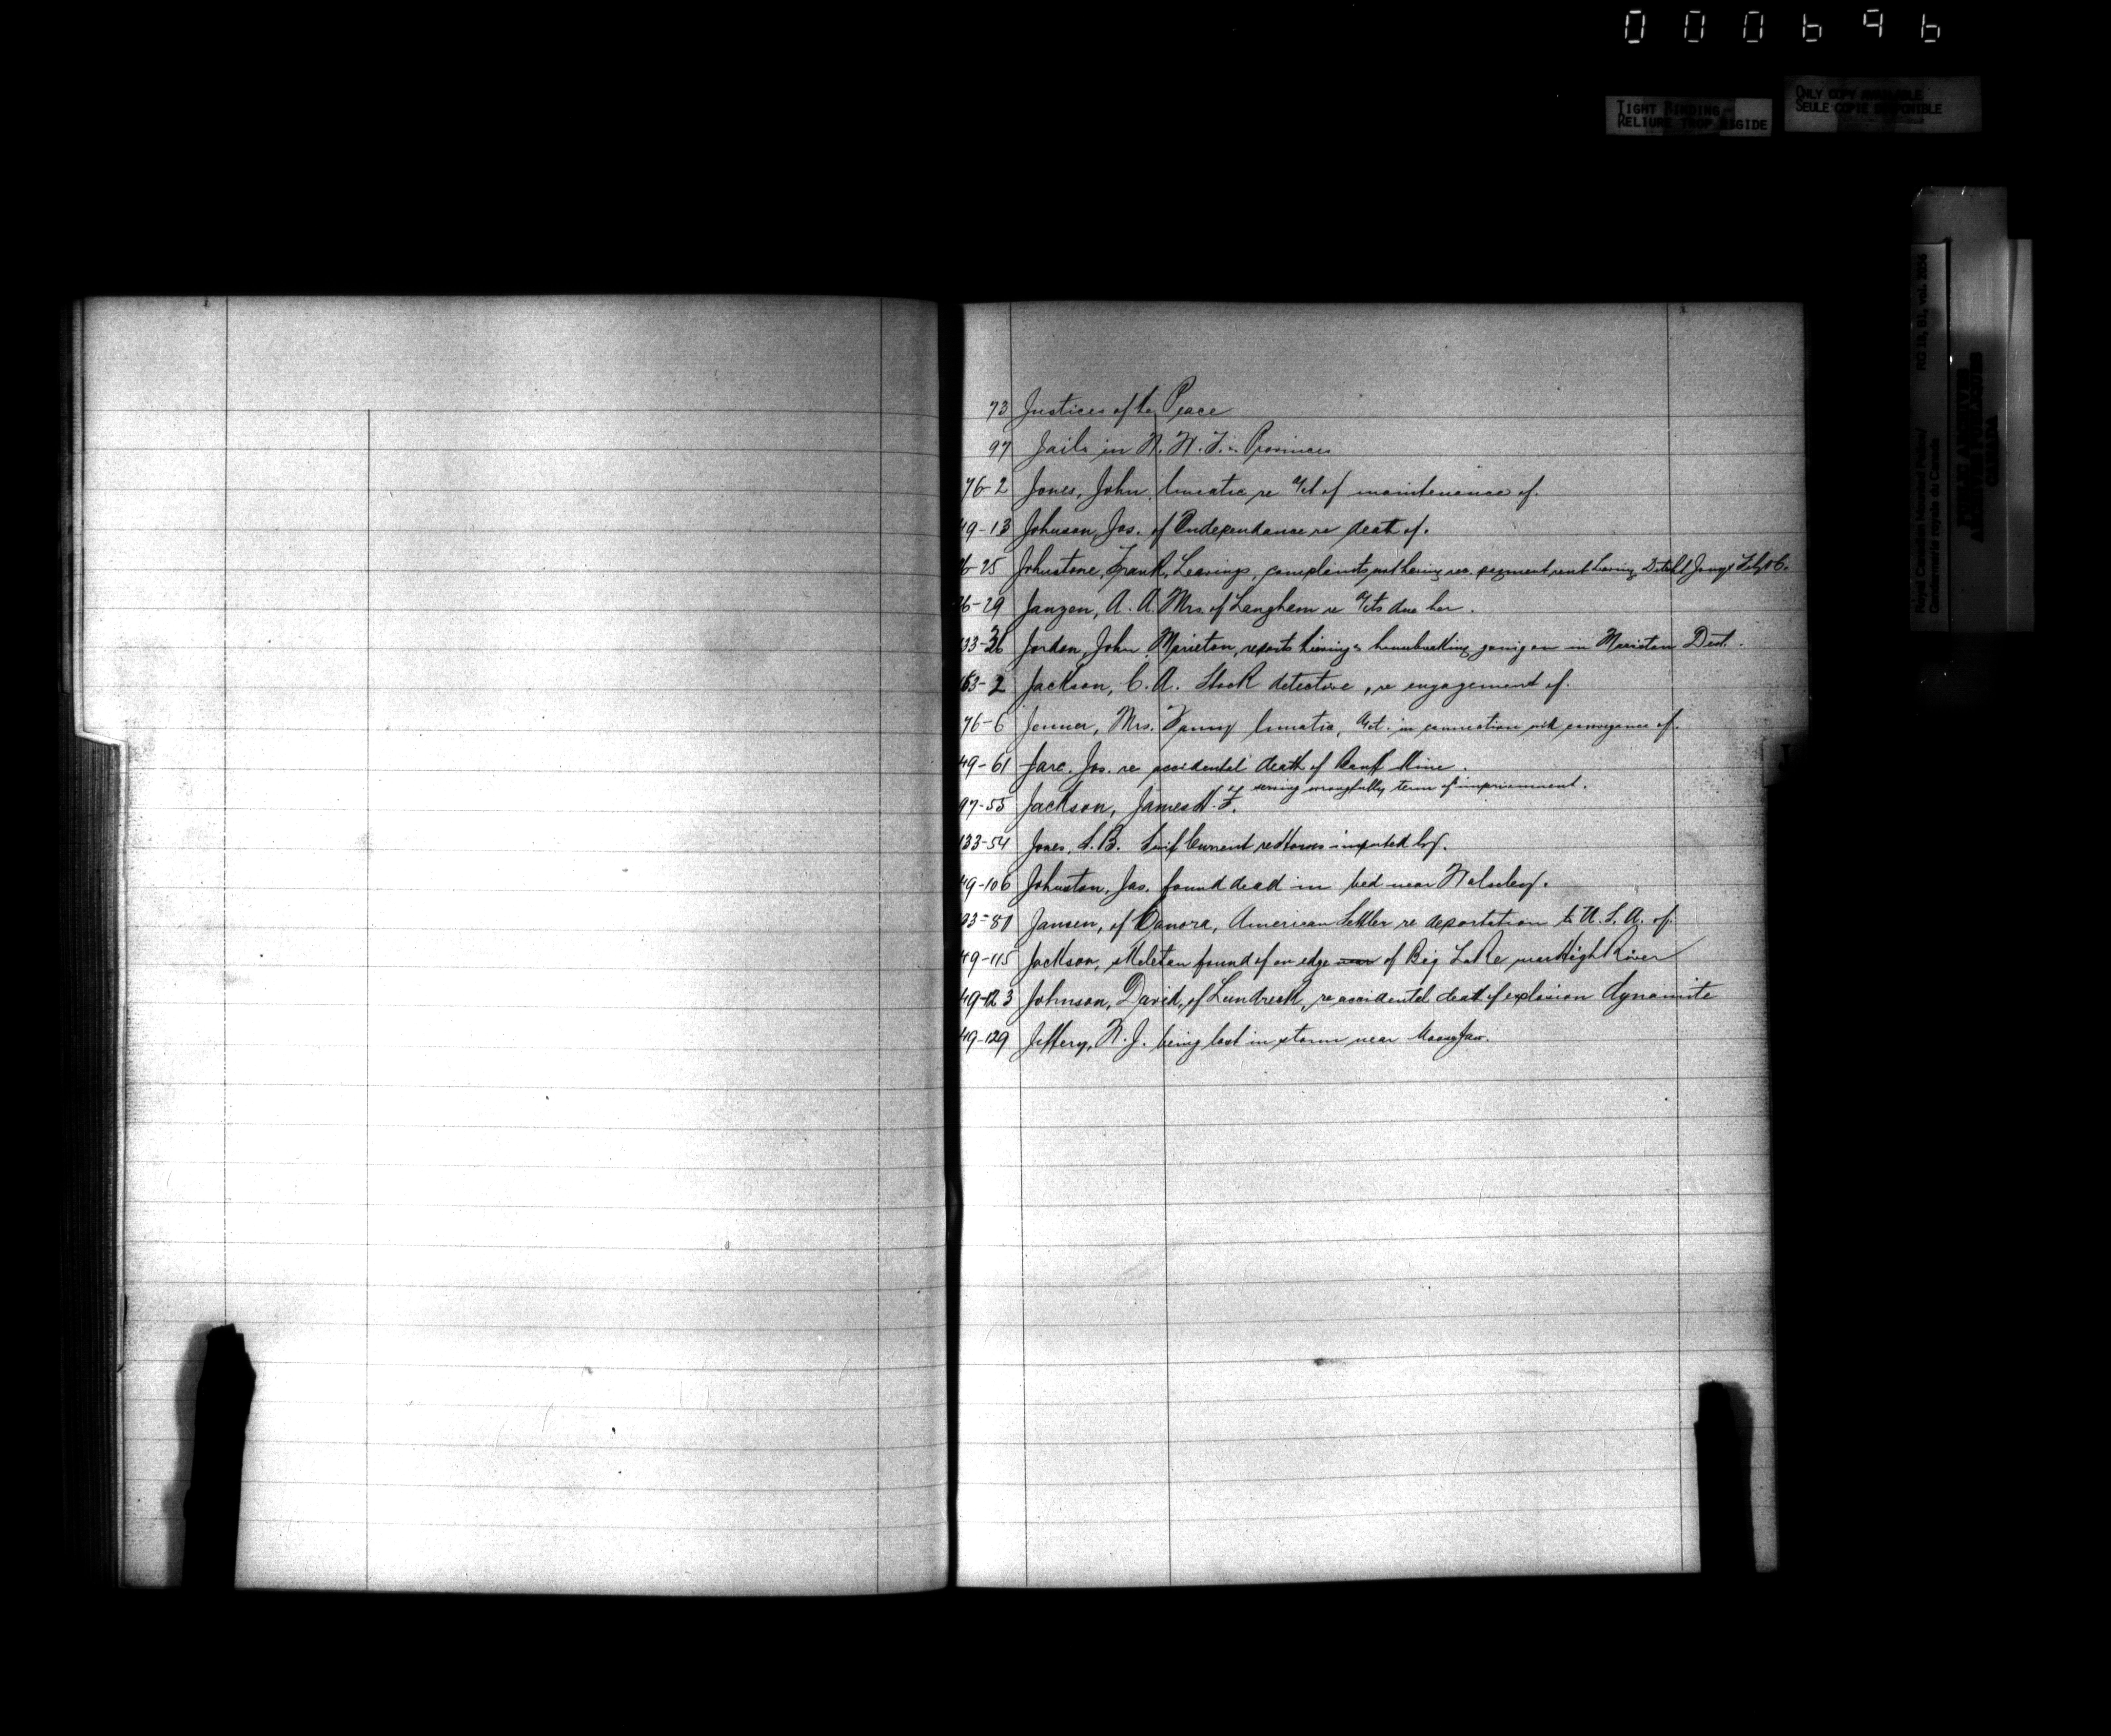 000696
TIGHT BINDING
RELIURE TROP RIGIDE
ONLY COPY AVAILABLE
SEULE COPIE DISPONIBLE
Royal Canadian Mounted Police/
Gendarmerie royale du Canada
RG 18, B1, vol.
PUBLIC ARCHIVES
ARCHIVES PUBLIQUES
CANADA
73 Justices of the Peace
97 Jails in N.W.T. & Provinces
76-2 Jones, John lunatic re a/ct of maintenance of.
49-13 Johnson, Jas. of Independance re death of.
-25 Johnstone, Frank, Leavings, complaints not having rec. payment rent Leavings Detcht
6-29 Janzen, A. A. Mrs. of Langham re a/cts due her.
133-36 Jordan, John Marieton, reports housebreaking going on in Marieton Dist.
-2 Jackson, C. A. Stock detective, re engagement of.
76-6 Jenner, Mrs. Fanny lunatic, a/ct. in connection with conveyance of.
49-61 Jarc. Jos. re accidental death of Banff Mine.
97-55 Jackson, James H. F. serving wrongfully term of imprisonment.
133-54 Jones, S.B. Swift Current re Horses imported by.
49-106 Johnston, Jas. found dead in bed near Wolseley.
93-81 Jansen, of Canora, American Settler re deportation to U.S.A. of.
49-115 Jackson, skeleton found of on edge near of Big Lake near High River
49-123 Johnson, David, of Lundreck, re accidental death of explosion dynamite
49-129 Jeffery, W. J. being lost in storm near Moosejaw.